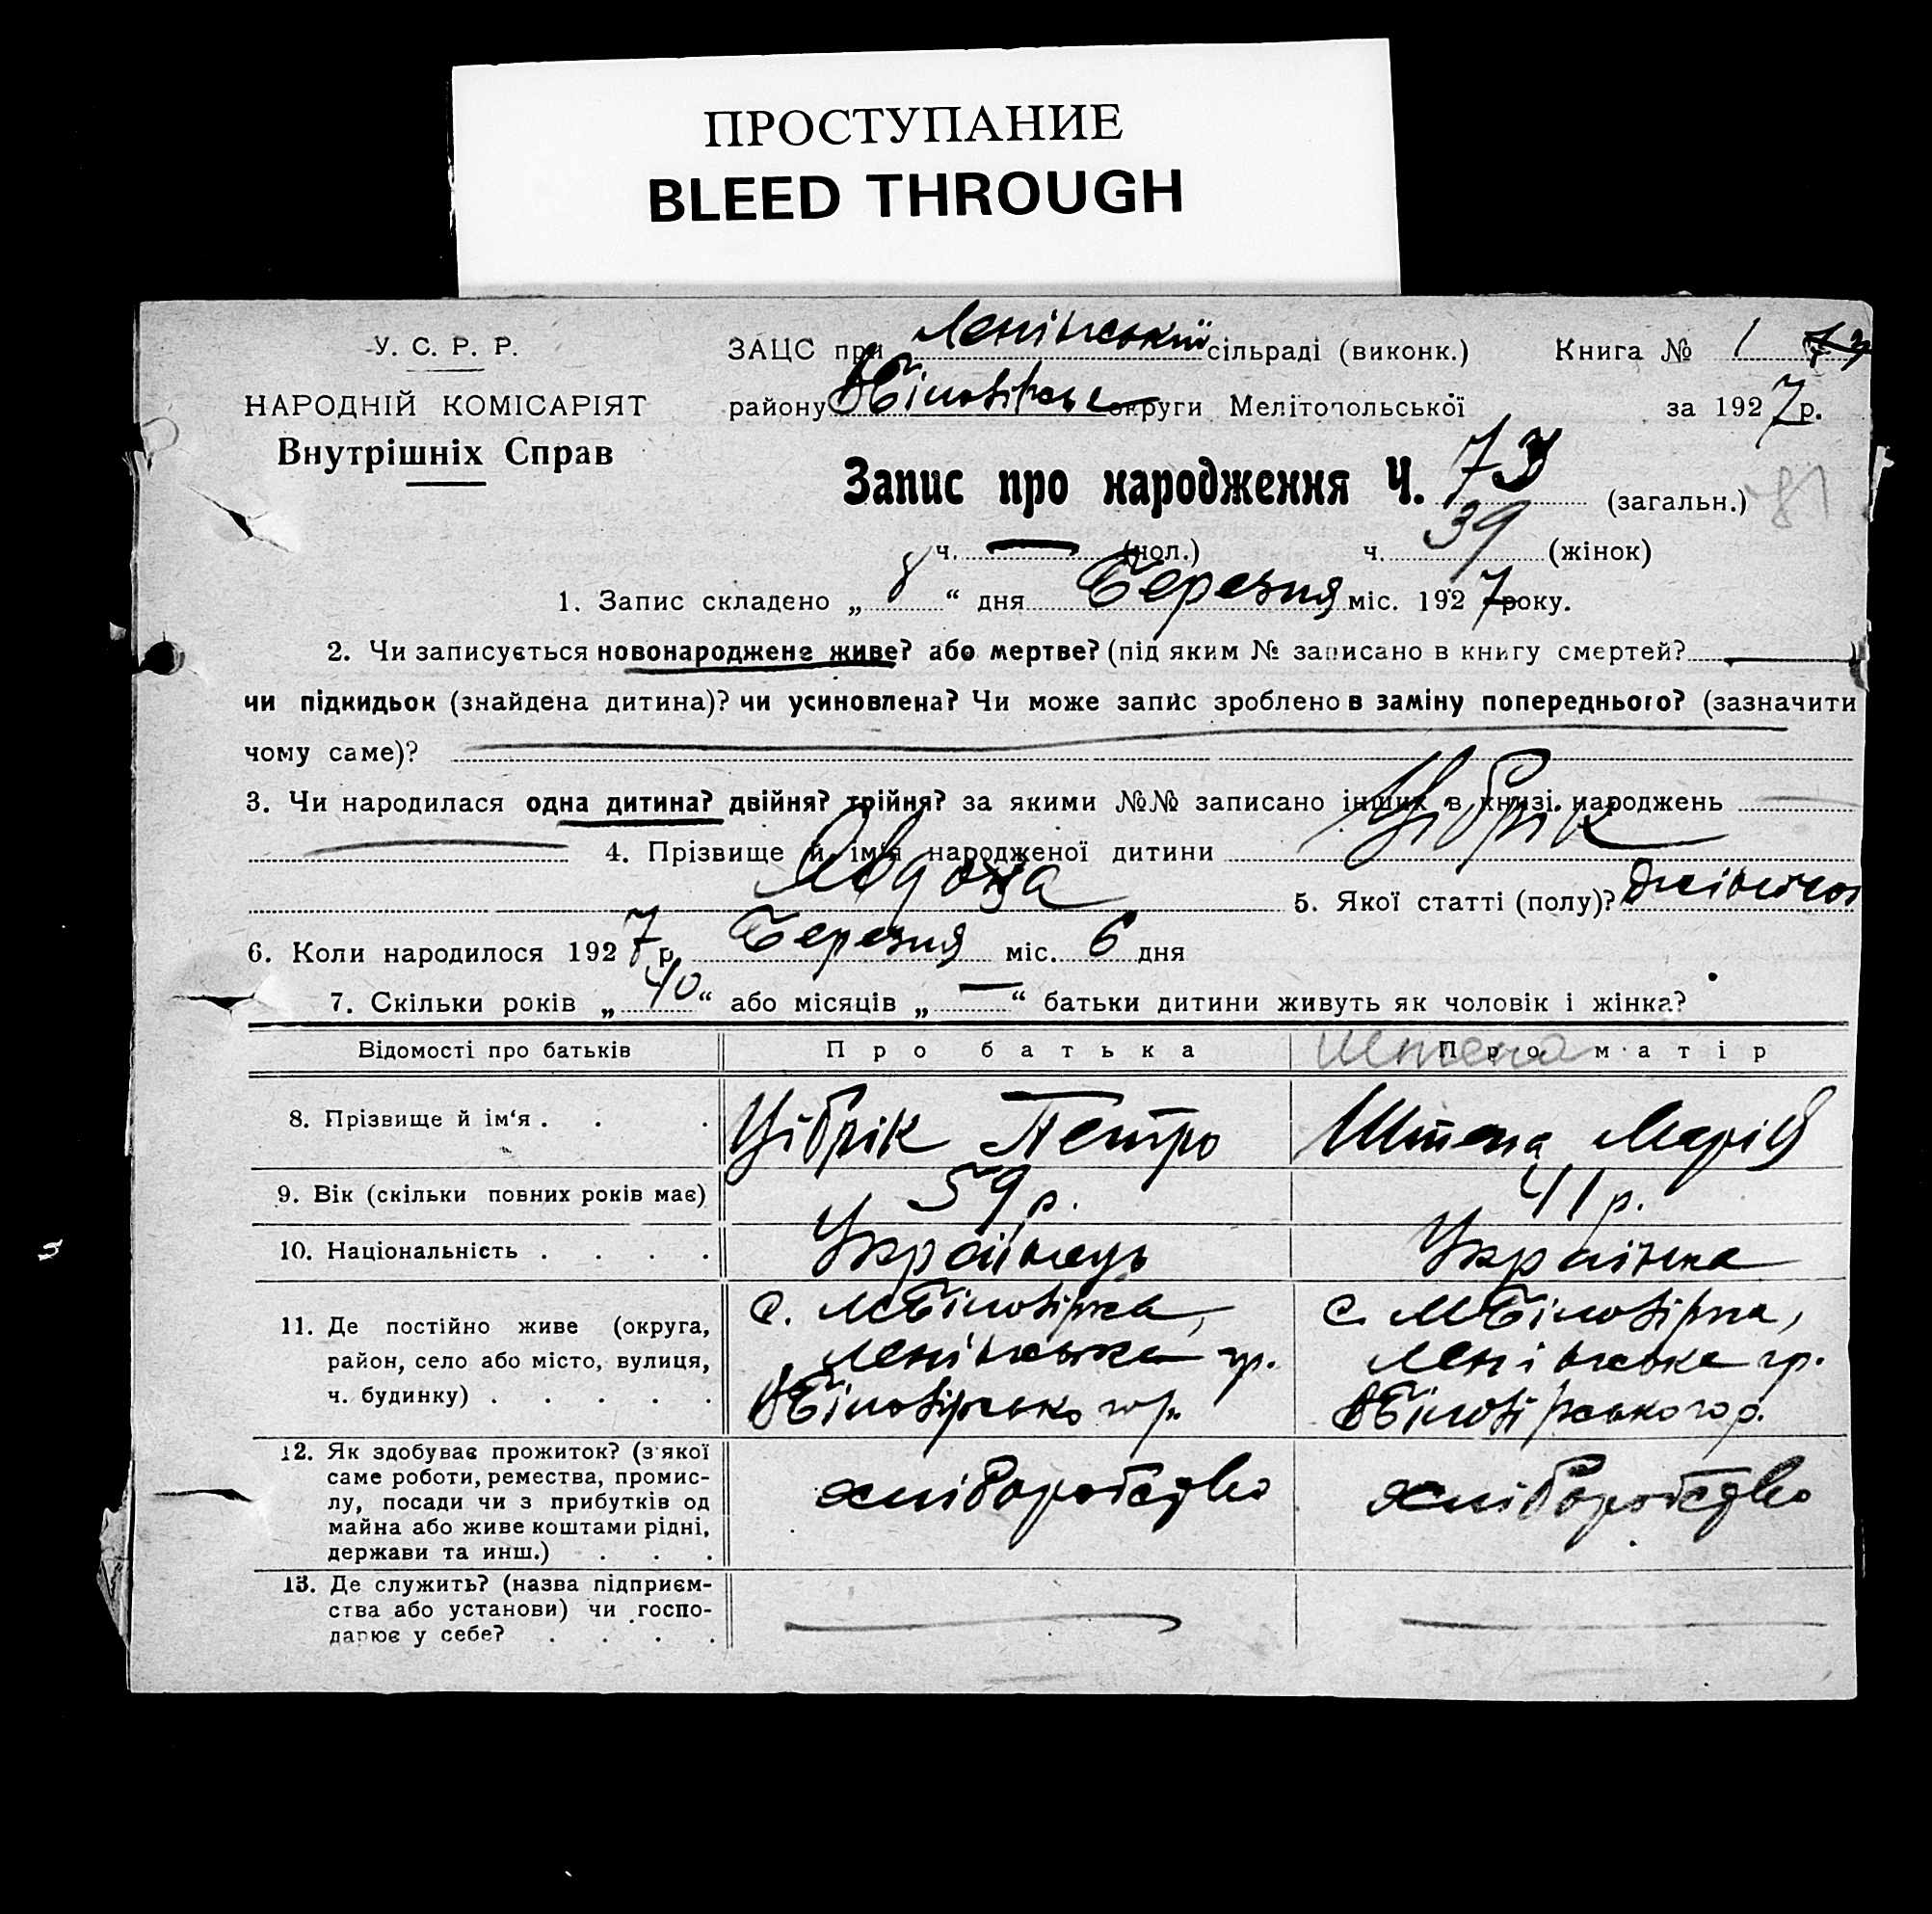 ПРОСТУПАНИЕ
BLEED THROUGH
У. С. Р. Р.
НАРОДНІЙ КОМІСАРІЯТ
Внутрішніх Справ
ЗАЦС при Ленінській сільраді (виконк.) Книга № 1 73
району округи Мелітопольської за 1927 р.
Запис про народження Ч. 73 (загальн.) 81
ч. — (чол.) ч. 39 (жінок)
1. Запис складено „ 8 “ дня Березня міс. 1927 року.
2. Чи записується новонароджене живе? або мертве? (під яким № записано в книгу смертей?
чи підкидьок (знайдена дитина)? чи усиновлена? Чи може запис зроблено в заміну попереднього? (зазначити
чому саме)?
3. Чи народилася одна дитина? двійня? трійня? за якими №№ записано інших в книзі народжень
4. Прізвище й ім'я народженої дитини Цібрік
Явдоха 5. Якої статті (полу)? дівочої
6. Коли народилося 1927 р. Березня міс. 6 дня
7. Скільки років „ “ або місяців „ — “ батьки дитини живуть як чоловік і жінка?
Відомості про батьків Про батька Про матір Штепа
8. Прізвище й ім‘я . . . Цібрік Петро Штепа Марія
9. Вік (скільки повних років має) 59 р. 41 р.
10. Національність . . . . Українець Українка
11. Де постійно живе (округа, с. МБілозірка, с. МБілозірка,
район, село або місто, вулиця, Ленінська гр. Ленінська гр.
ч. будинку) . . . . . ВБілозірського р. ВБілозірського р.
12. Як здобуває прожиток? (з якої
саме роботи, ремества, промис-
лу, посади чи з прибутків од хліборобство хліборобство
майна або живе коштами рідні,
держави та инш.) . . .
13. Де служить? (назва підприєм-
ства або установи) чи госпо-
дарює у себе? . . . .